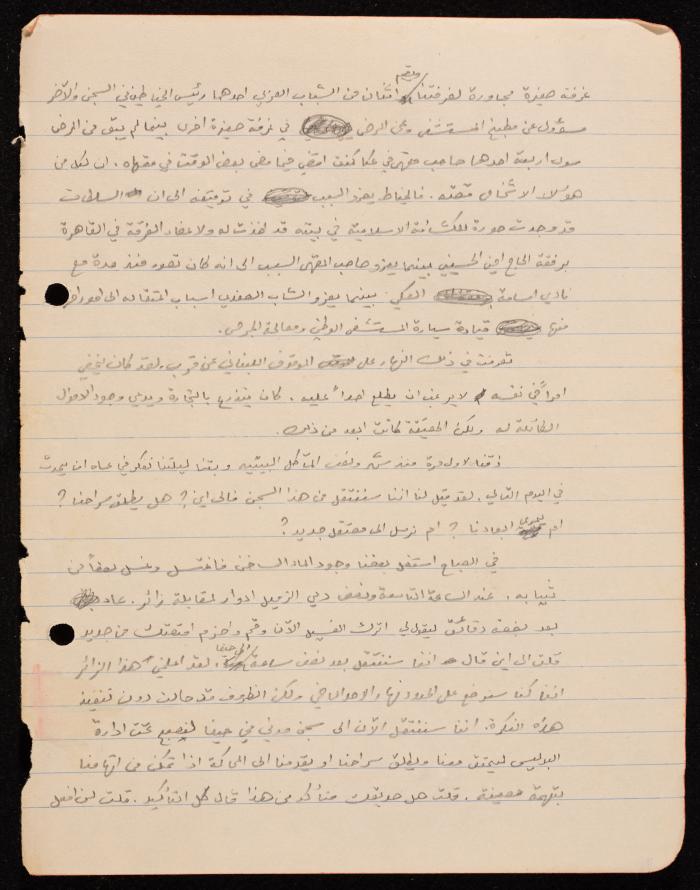 ويقيم
غرفة صغيرة مجاورة لغرفتنا اثنان من الشباب العربي احدهما رئيس الخياطين في السجن والآخر
مسؤول عن مطبخ المستشفى وعن المرضى في غرفة صغيرة اخرى بينما لم يبق من المرضى
سوى اربعة احدهما صاحب مقهى في عكا كنت اقضي فيما مضى بعض الوقت في مقهاه. ان لكل من
هؤلاء الاشخاص قصته. فالخياط يعزو السبب في توقيفه الى ان السلطات
قد وجدت صورة للكشافة الاسلامية في بيته قد اخذت له ولاعضاء الفرقة في القاهرة
برفقة الحاج امين الحسيني بينما يعزو صاحب المقهى السبب الى انه كان تصور منذ مدة مع
نادي اسامة العكي بينما يعزو الشاب الصفدي اسباب اعتقاله الى امور اخرى
منها قيادة سيارة المستشفى الوطني ومعالجة الجرحى.
تعرفت في ذلك النهار على الموقوف اللبناني عن قرب. لقد كان يخفي
امراً في نفسه لا يرغب ان يطلع احداً عليه. كان يتذرع بالتجارة ويدعي وجود الاموال
الطائلة له ولكن الحقيقة كانت ابعد من ذلك.
ذقنا لاول مرة منذ شهر ونصف المآكل البيتية وبتنا ليلتنا نفكر في ما عساه ان يحدث
في اليوم التالي. لقد قيل لنا اننا سننتقل من هذا السجن فالى اين؟ هل يطلق سراحنا؟
ام يجري ابعادنا؟ ام نرسل الى معتقل جديد؟
في الصباح استغل بعضنا وجود الماء الساخن فاغتسل وغسل بعضاً من
ثيابه. عند الساعة التاسعة ونصف دعي الزميل ادوار لمقابلة زائر. عاد
بعد بضعة دقائق ليقول لي اترك الغسيل الآن وقم واحزم امتعتك من جديد
قلت الى اين قال اننا سننتقل بعد نصف ساعة الى حيفا. لقد اعلمني هذا الزائر
اننا كنا سنوضع على الحدود نهار الاحد الماضي ولكن الظروف قد حالت دون تنفيذ
هذه الفكرة. اننا سننتقل الآن الى سجن مدني في حيفا لنصبح تحت ادارة
البوليس ليحقق معنا ويطلق سراحنا او يقدمنا الى المحاكمة اذا تمكن من اتهامنا
بتهمة معينة. قلت هل صديقك متأكد من هذا قال كل التأكيد. قلت لن افعل